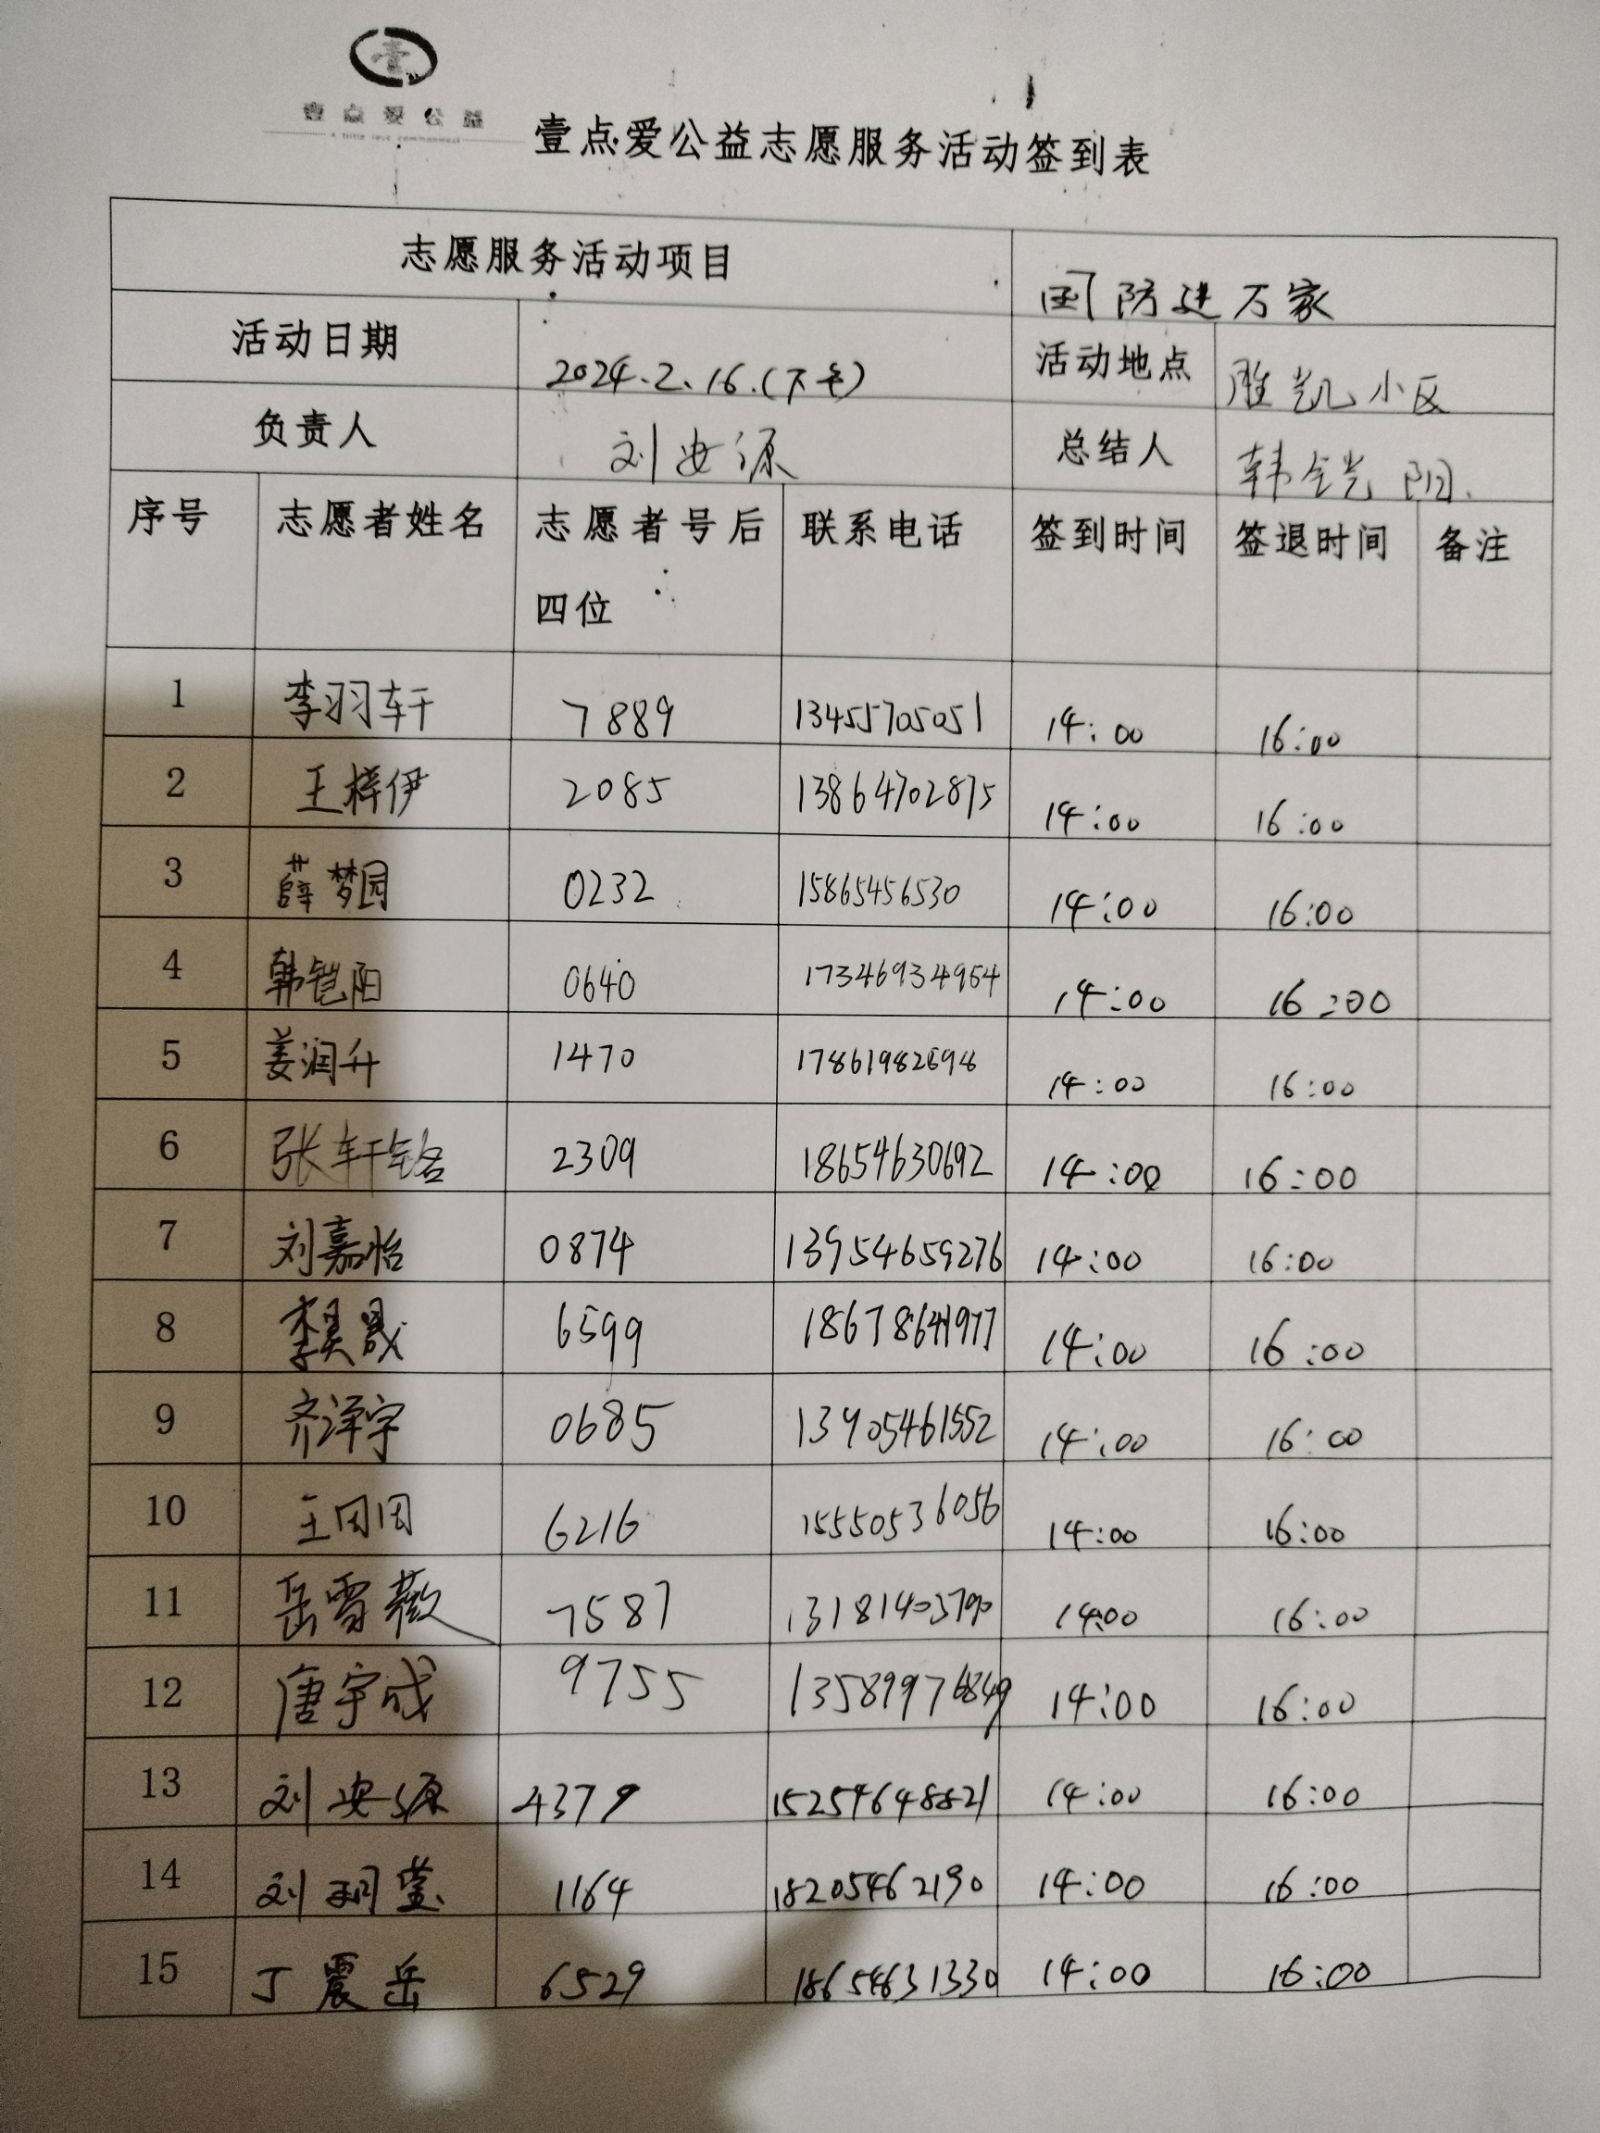 壹点爱公益
壹点爱公益志愿服务活动签到表
志愿服务活动项目 国防进万家
活动日期 2024.2.16.(下午) 活动地点 胜凯小区
负责人 刘安源 总结人 韩铠阳
序号 志愿者姓名 志愿者号后四位 联系电话 签到时间 签退时间 备注
1 李羽轩 7889 13455705051 14:00 16:00
2 王梓伊 2085 13864702875 14:00 16:00
3 薛梦园 0232 15865456530 14:00 16:00
4 韩铠阳 0640 17346934954 14:00 16:00
5 姜润升 1470 17861982698 14:00 16:00
6 张轩铭 2309 18654630692 14:00 16:00
7 刘嘉怡 0874 13954659276 14:00 16:00
8 李昊晟 6599 18678641977 14:00 16:00
9 齐泽宇 0685 13905461552 14:00 16:00
10 王田田 6216 15550536056 14:00 16:00
11 岳雪薇 7587 13181403790 14:00 16:00
12 唐宇成 9755 13589976849 14:00 16:00
13 刘安源 4379 15254648821 14:00 16:00
14 刘玥莹 1164 18205462190 14:00 16:00
15 丁震岳 6529 18654631330 14:00 16:00